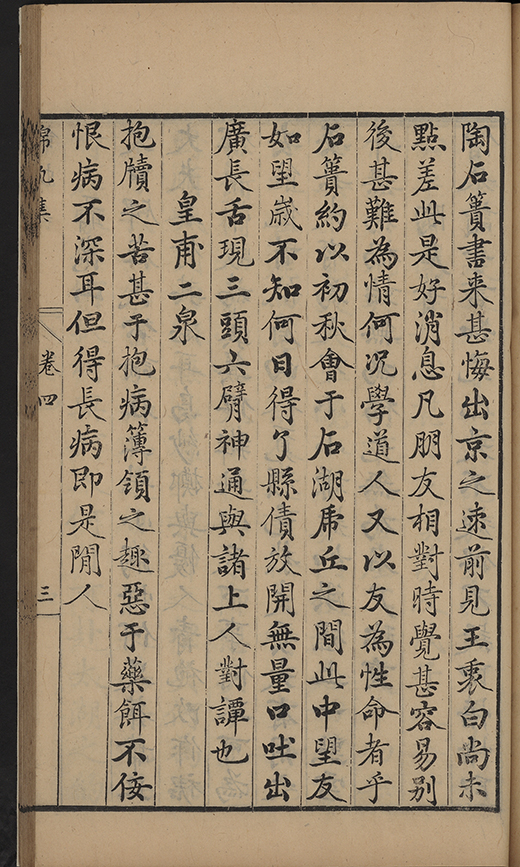 陶石簣書来甚悔出京之速前見王衷白尚未
點差此是好消息凡朋友相對時覺甚容易别
後甚難為情何况學道人又以友為性命者乎
石簣約以初秋會于石湖虎丘之間此中望友
如望歲不知何日得了縣債放開無量口吐出
廣長舌現三頭六臂神通與諸上人對譚也
皇甫二泉
抱牘之苦甚于抱病簿領之趣惡于藥餌不佞
恨病不深耳但得長病即是閒人
錦帆集
卷四
三